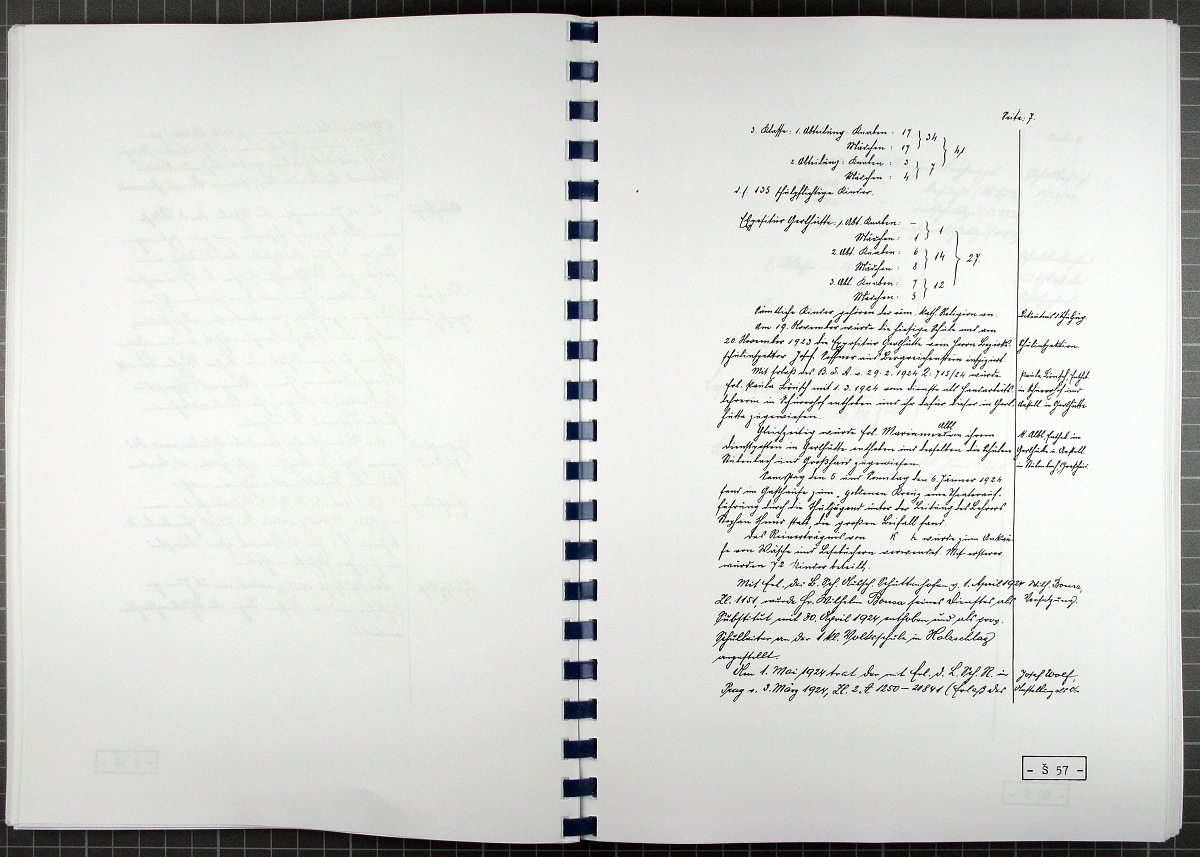 Seite: 7.
3. Klasse: 1. Abteilung: Knaben: 17 } 34
Mädchen: 17 } 41
2. Abteilung: Knaben: 3 } 7
Mädchen: 4
d. s. 135 schulpflichtige Kinder.
Expositur Gerlhütte: 1. Abt. Knaben: — } 1
Mädchen: 1
2. Abt. Knaben: 6 } 14 } 27.
Mädchen: 8
3. Abt. Knaben: 7 } 12
Mädchen: 5
Sämtliche Kinder gehören der röm. kath. Religion an.
Am 19. November wurde die hiesige Schule und am Schulinspektion.
20. November 1923 die Expositur Gerlhütte vom Herrn Bezirks-
schulinspektor Josef Seffner aus Bergreichenstein inspiziert.
Mit Erlaß des B. S. A. v. 29. 2. 1924 Z. 715/24 wurde
Frl. Paula mit 1. 3. 1924 vom Dienste als Handarbeits-
lehrerin in enthoben und ihr dafür dieser in Gerl- Anstell. in Gerlhütte
hütte zugewiesen.
Gleichzeitig wurde Frl. Marianne Altl von ihrem M. Altl, Entheb. in
Dienstposten in Gerlhütte enthoben und derselben die Schulen Gerlhütte u. Anstell.
Stubenbach und Großhaid zugewiesen. in Stubenbach, Großhaid.
Samstag den 5. und Sonntag den 6. Jänner 1924
fand im Gasthause zum "goldenen Kreuz" eine Theaterauf-
führung durch die Schuljugend unter der Leitung des Lehrers
Stephan statt, die großen Beifall fand.
Das Reinerträgnis von K h wurde zum Ankau-
fe von Wäsche und Lesebüchern verwendet. Mit ersterer
wurden 72 Kinder beteilt.
Mit Erl. des B. Sch. Aussch. Schüttenhofen v. 1. April 1924 Wilh. Bonsa,
Zl. 1151, wurde Hr. Wilhelm Bonsa seines Dienstes als Versetzung.
Substitut mit 30. April 1924 enthoben und als prov.
Schulleiter an der 1 kl. Volksschule in Holzschlag
angestellt.
Am 1. Mai 1924 trat der mit Erl. d. L. Sch. R. in Josef Wolf,
Prag v. 3. März 1924, Zl. 2. A 1250 – 21841 (Erlaß des Anstellung als
- Š 57 -